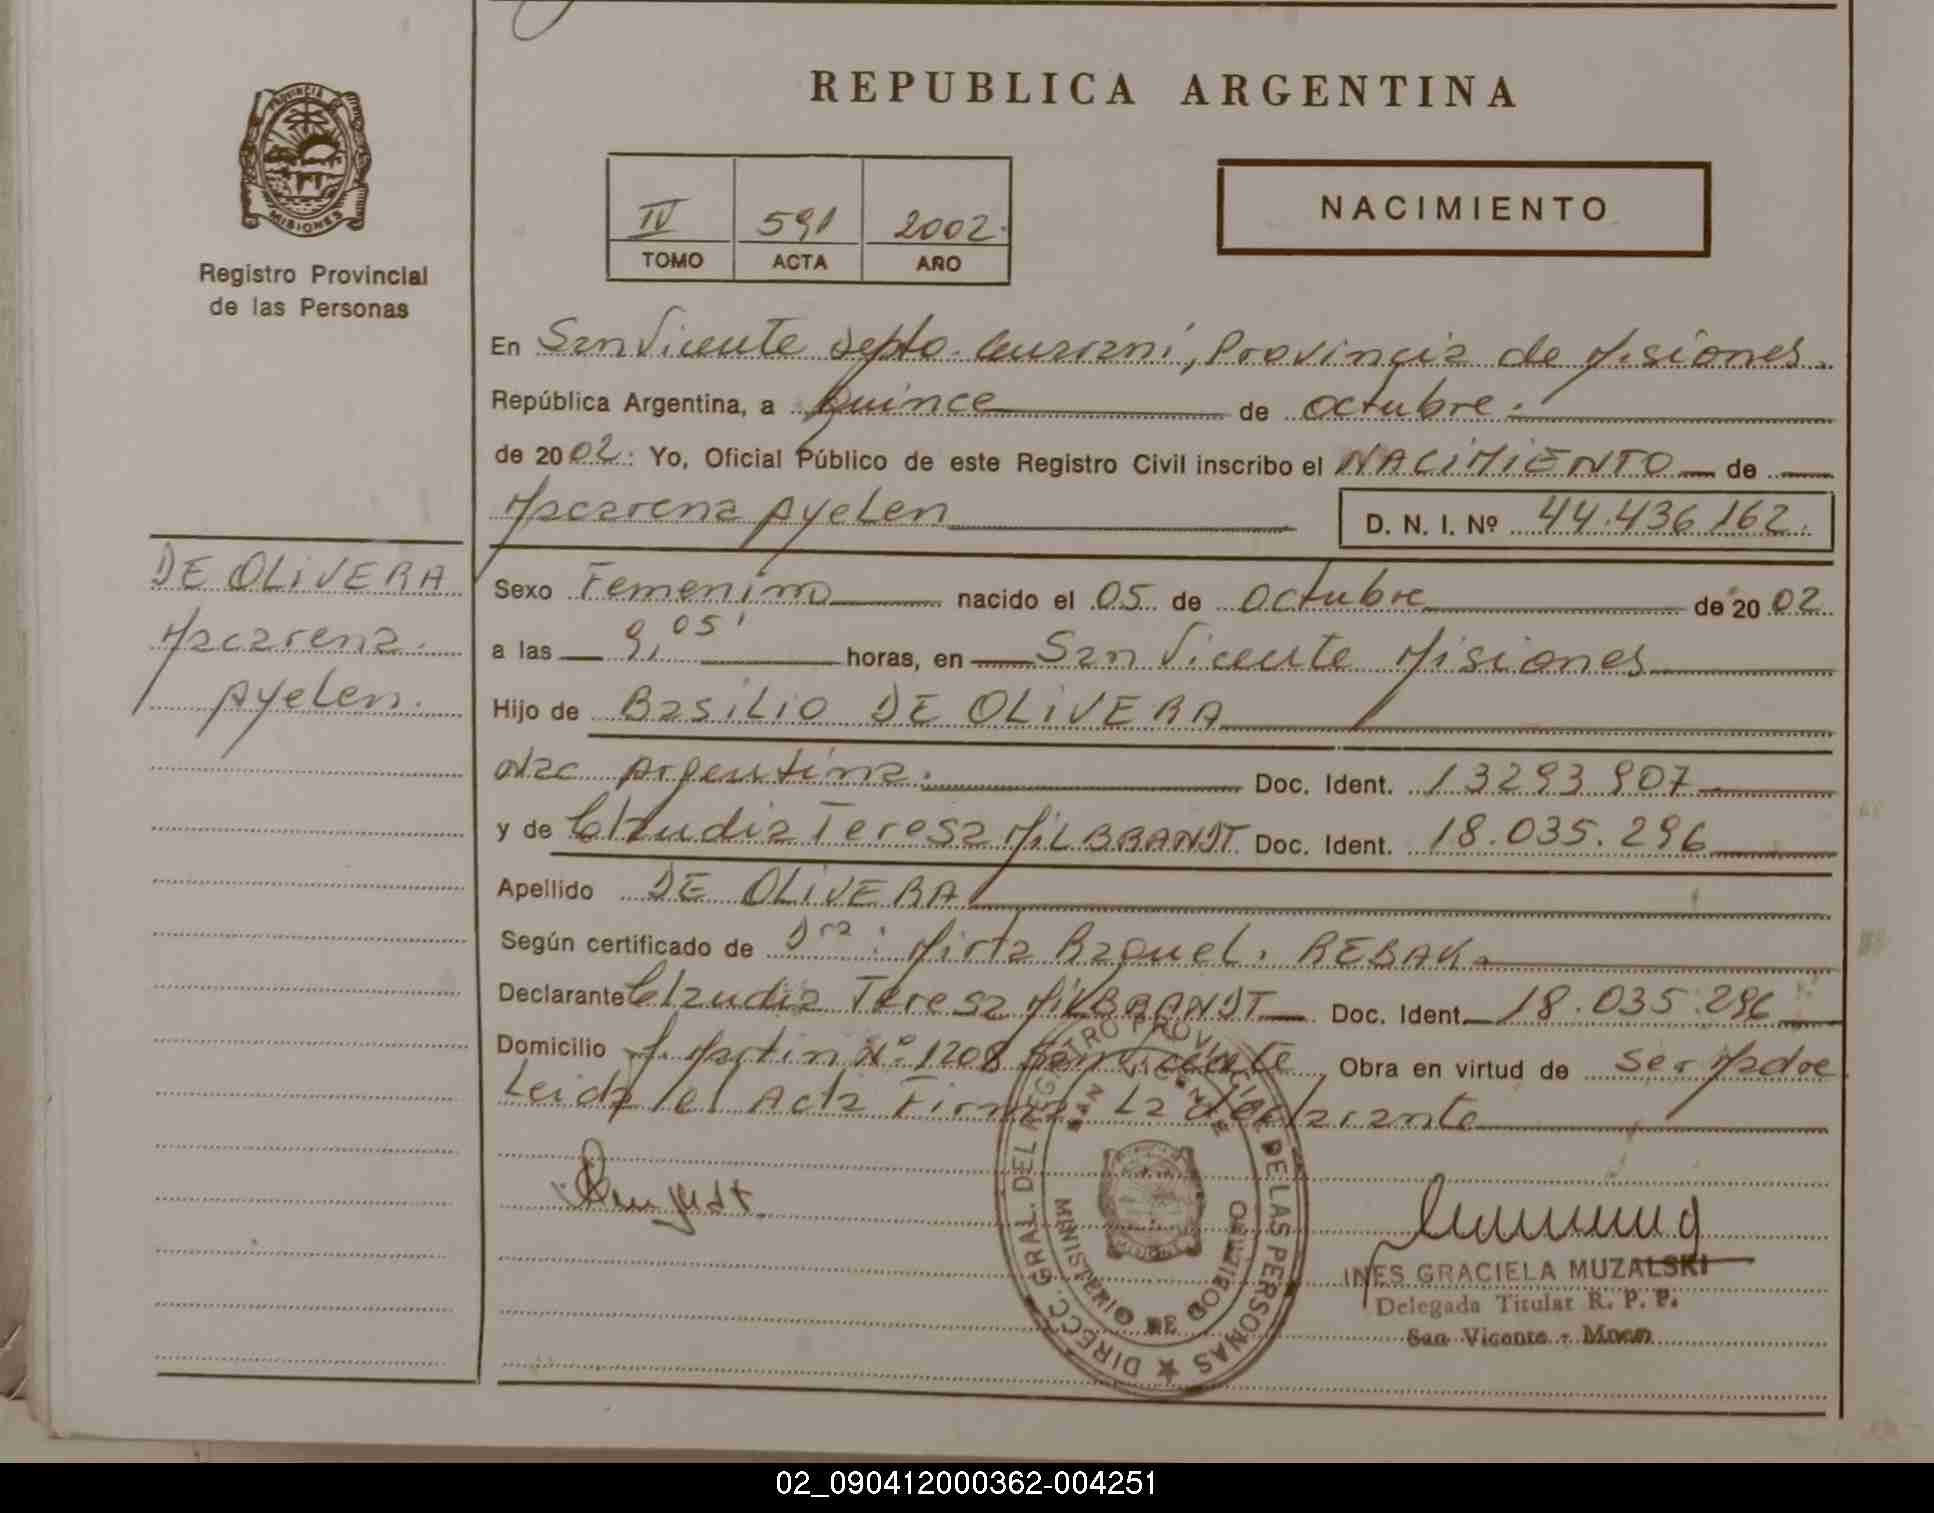 REPUBLICA ARGENTINA
PROVINCIA DE
MISIONES
Registro Provincial
de las Personas
IV 591 2002.
TOMO ACTA AÑO
NACIMIENTO
En San Vicente Depto. Guarani, Provincia de Misiones.
República Argentina, a Quince de octubre.
de 2002: Yo, Oficial Público de este Registro Civil inscribo el NACIMIENTO de
Macarena Ayelen D. N. I. Nº 44.436.162.
DE OLIVERA
Macarena.
Ayelen.
Sexo Femenino nacido el 05 de Octubre de 2002
a las 9,05' horas, en San Vicente Misiones
Hijo de Basilio DE OLIVERA
Nac Argentina. Doc. Ident. 13293907
y de Claudia Teresa MILBRANDT Doc. Ident. 18.035.296
Apellido DE OLIVERA
Según certificado de Dra: Mirta Raquel. REBAK.
Declarante Claudia Teresa MILBRANDT Doc. Ident. 18.035.296
Domicilio S. Martin Nº 1208 San Vicente Obra en virtud de ser Madre
Leida el Acta Firma La declarante
DIRECC. GRAL. DEL REGISTRO PROVINCIAL DE LAS PERSONAS
SAN VICENTE
MINISTERIO DE GOBIERNO
INES GRACIELA MUZALSKI
Delegada Titular R. P. P.
San Vicente - Mnes
02_090412000362-004251